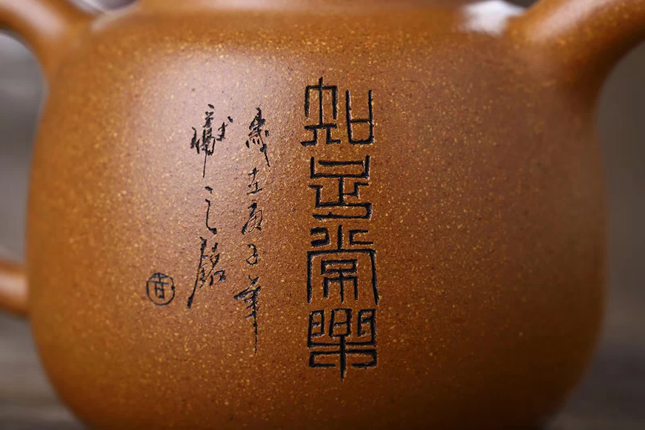 知足常樂
歲在庚子年
獻之銘